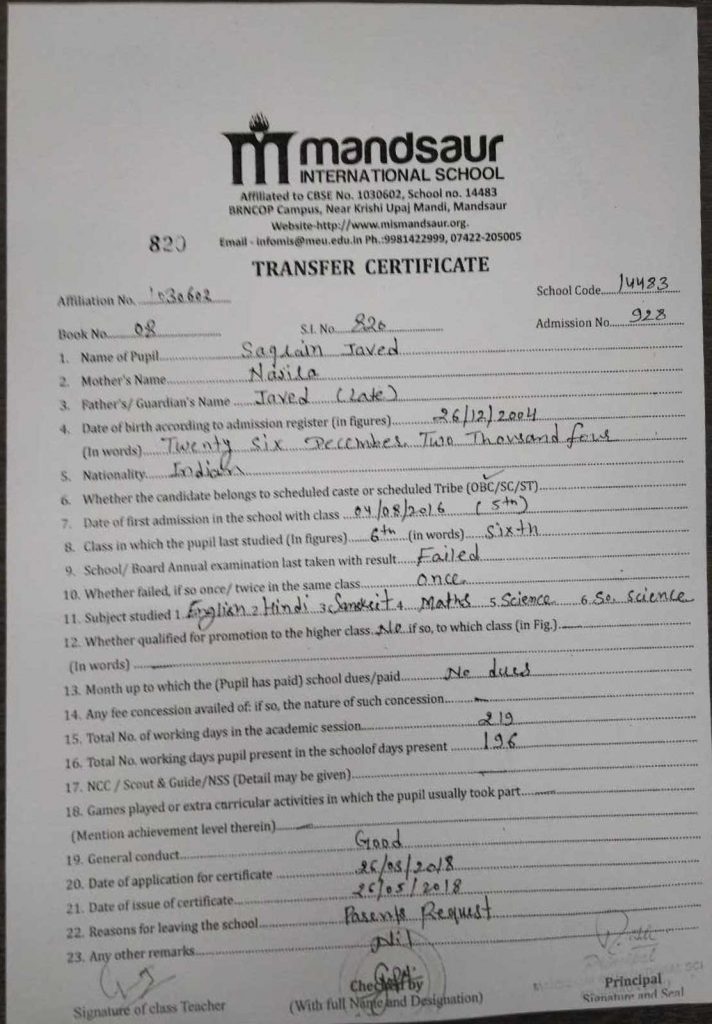 mandsaur
INTERNATIONAL SCHOOL
Affiliated to CBSE No. 1030602, School no. 14483
BRNCOP Campus, Near Krishi Upaj Mandi, Mandsaur
Website-http://www.mismandsaur.org.
Email - infomis@meu.edu.in Ph.:9981422999, 07422-205005
820
TRANSFER CERTIFICATE
Affiliation No. 1030602 School Code 14483
Book No. 08 S.I. No. 820 Admission No. 928
1. Name of Pupil Saqlain Javed
2. Mother's Name Nasila
3. Father's/ Guardian's Name Javed (Late)
4. Date of birth according to admission register (in figures) 26/12/2004
(In words) Twenty Six December Two Thousand four
5. Nationality Indian
6. Whether the candidate belongs to scheduled caste or scheduled Tribe (OBC/SC/ST)
7. Date of first admission in the school with class 04/08/2016 (5th)
8. Class in which the pupil last studied (In figures) 6th (in words) Sixth
9. School/ Board Annual examination last taken with result Failed
10. Whether failed, if so once/ twice in the same class once
11. Subject studied 1 English 2 Hindi 3 Sanskrit 4 Maths 5 Science 6 So. science
12. Whether qualified for promotion to the higher class No if so, to which class (in Fig.)
(In words)
13. Month up to which the (Pupil has paid) school dues/paid No dues
14. Any fee concession availed of: if so, the nature of such concession
15. Total No. of working days in the academic session 219
16. Total No. working days pupil present in the schoolof days present 196
17. NCC / Scout & Guide/NSS (Detail may be given)
18. Games played or extra curricular activities in which the pupil usually took part
(Mention achievement level therein)
19. General conduct Good
20. Date of application for certificate 26/05/2018
21. Date of issue of certificate 26/05/2018
22. Reasons for leaving the school Parents Request
23. Any other remarks Nil
Signature of class Teacher
Checked by
(With full Name and Designation)
Principal
Signature and Seal